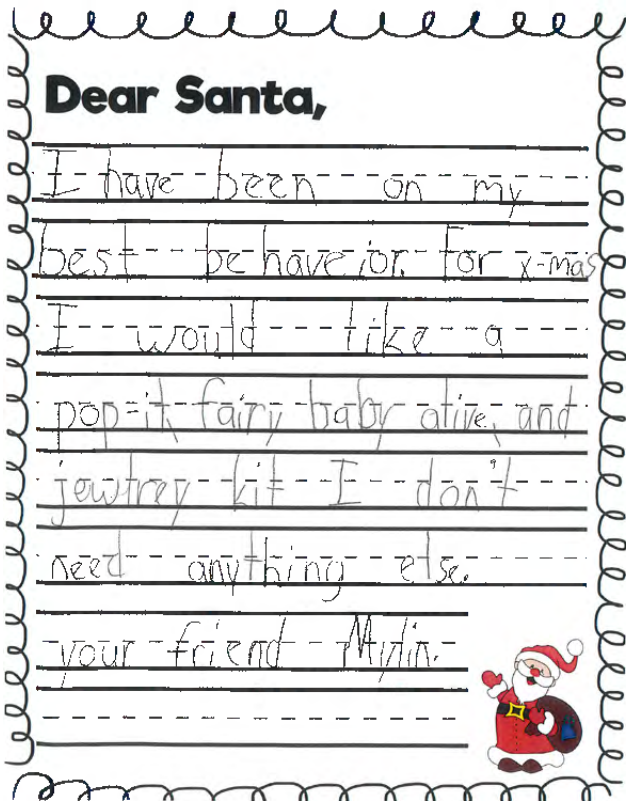 Dear Santa,
I have been on my
best be have ior. For x-mas
I would like a
pop-it, fairy baby alive, and
jewlrey kit I don't
need anything else.
your friend Mylin.